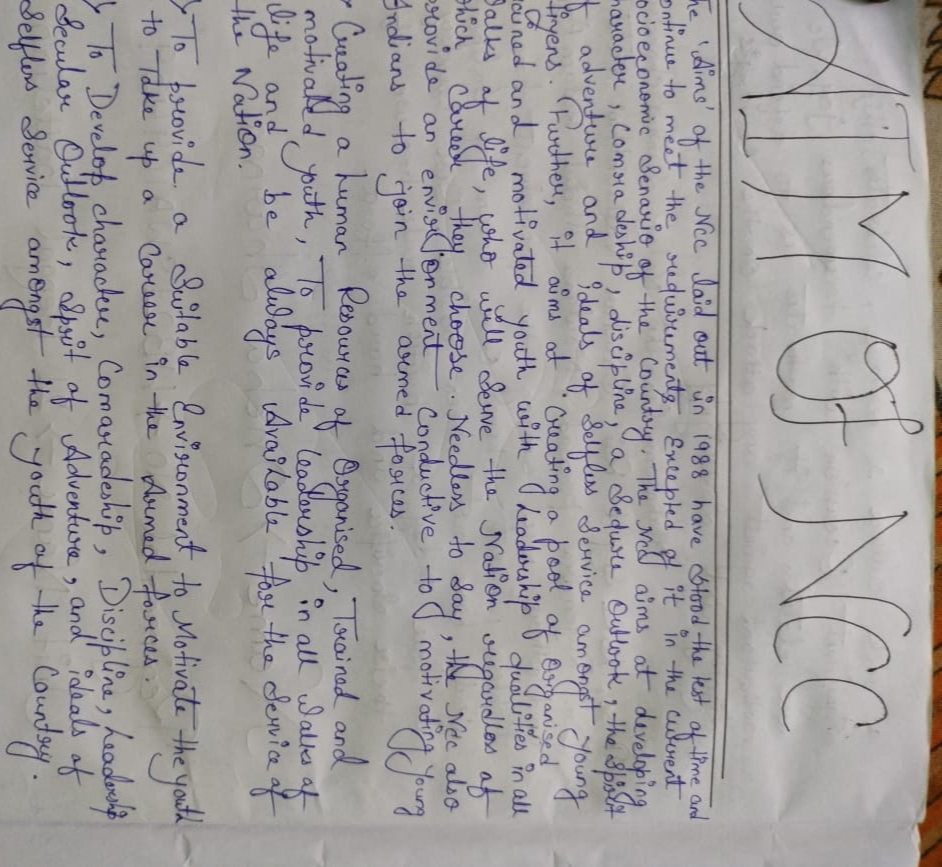 AIM OF NCC
The 'Aims' of the Ncc laid out in 1988 have stood the test of time and
continue to meet the requirements Excepted of it in the current
socioeconomic Senario of the Country. The Ncc aims at developing
character, Comradeship, discipline, a Secure Outlook, the spirit
of adventure and ideals of Selfless Service amongst young
citizens. Further, it aims at Creating a pool of organised
trained and motivated youth with Leadership Qualities in all
walks of life, who will Serve the Nation regardless of
which Career they choose. Needless to say, the Ncc also
provide an environment Conductive to motivating young
Indians to join the armed forces.
Creating a human Resources of Organised, Trained and
motivated youth, To provide leadership in all walks of
life and be always Available for the Service of
the Nation.
To provide a Suitable Environment to Motivate the youth
to Take up a Career in the Armed forces.
To Develop character, Comaradeship, Discipline, Leadership
Secular Outlook, Spirit of Adventure, and ideals of
Selfless Service amongst the youth of the Country.